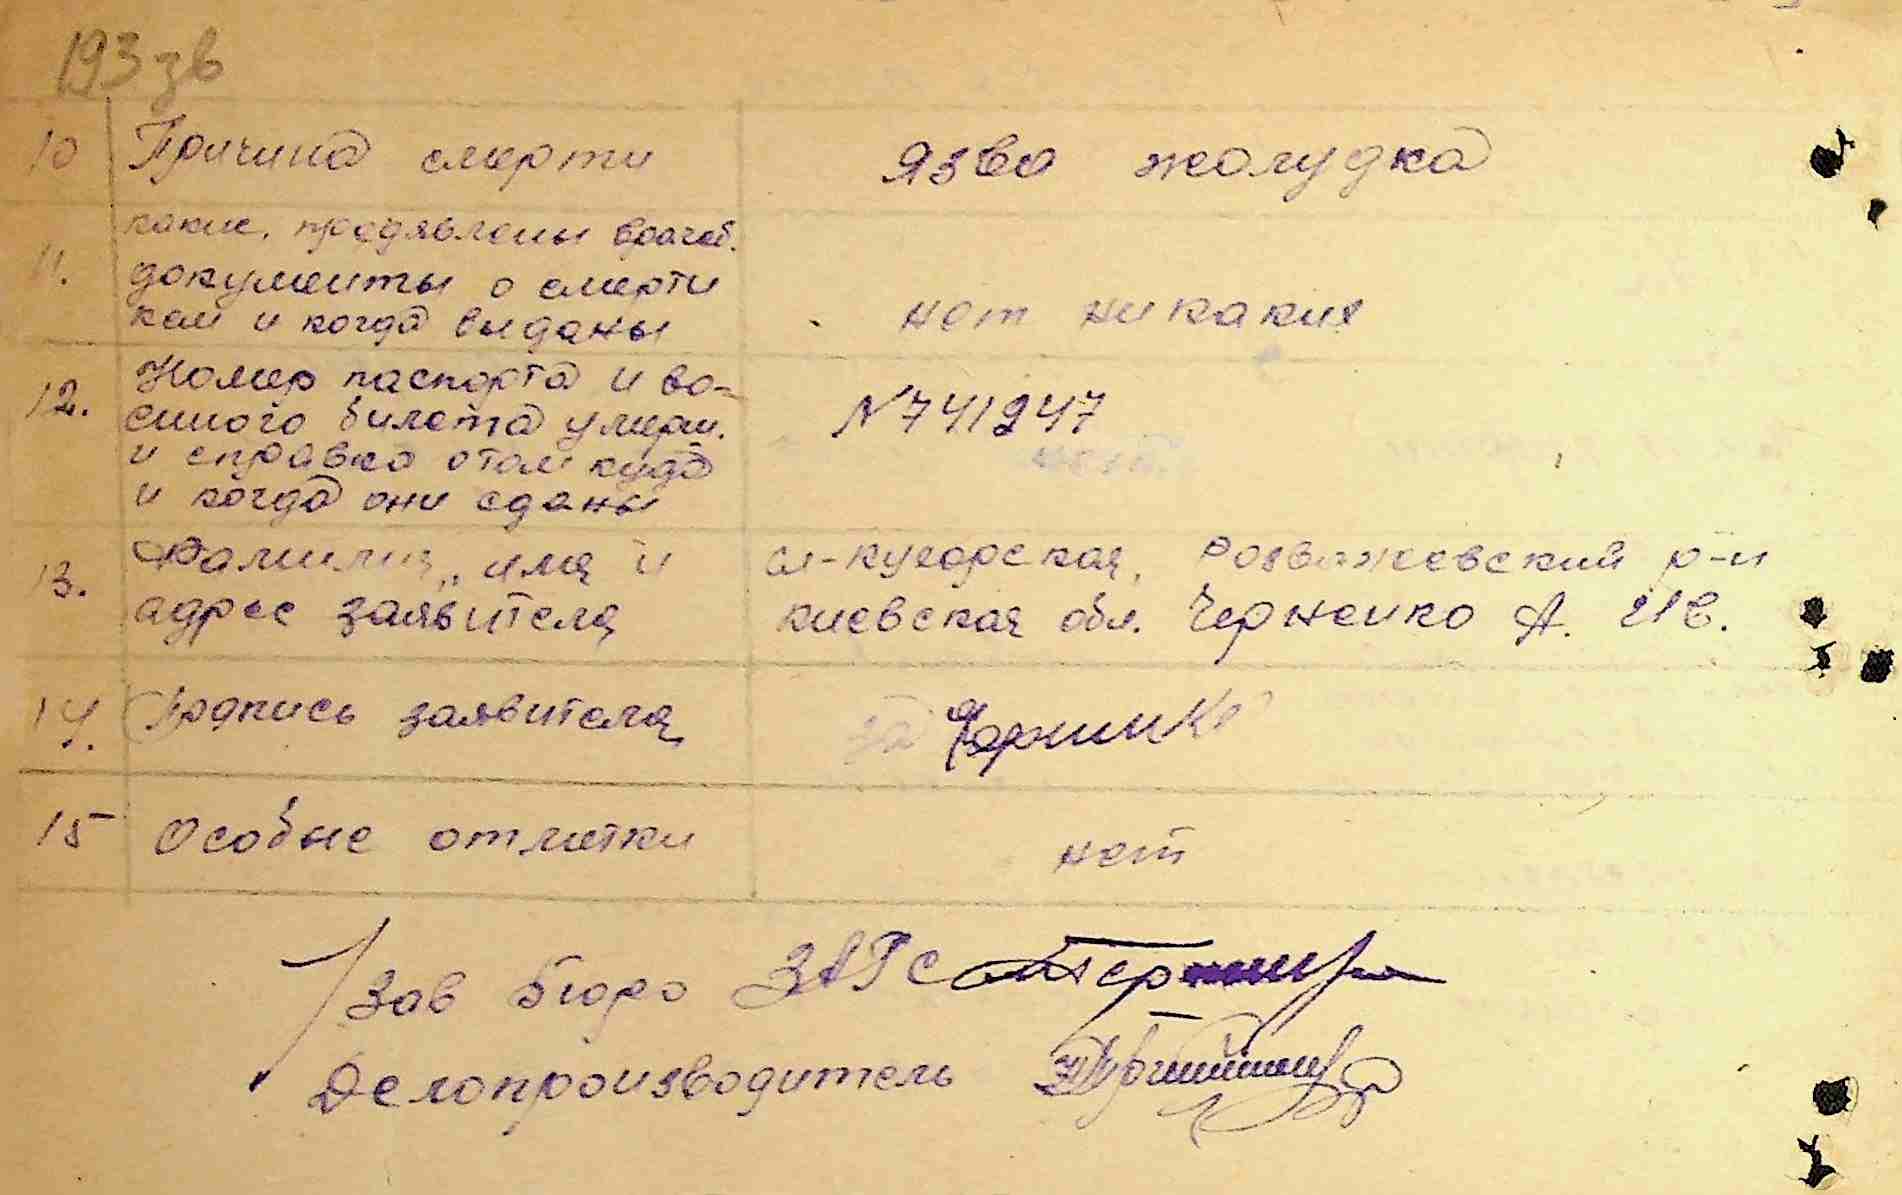 193 зв
10 Причина смерти язва жолудка
11. какие, предявлены врачеб.
документы о смерти
кем и когда выданы
нет никаких
12. Номер паспорта и во-
енного билета умерш.
и справка отом куда
и когда они сданы
N 741247
13. Фамилия, имя и
адрес заявителя
Розважевский р-н
киевская обл. Черненко А. Ив.
14. Подпись заявителя
за
15 Особые отметки нет
Зав Бюро ЗАГС
Делопроизводитель